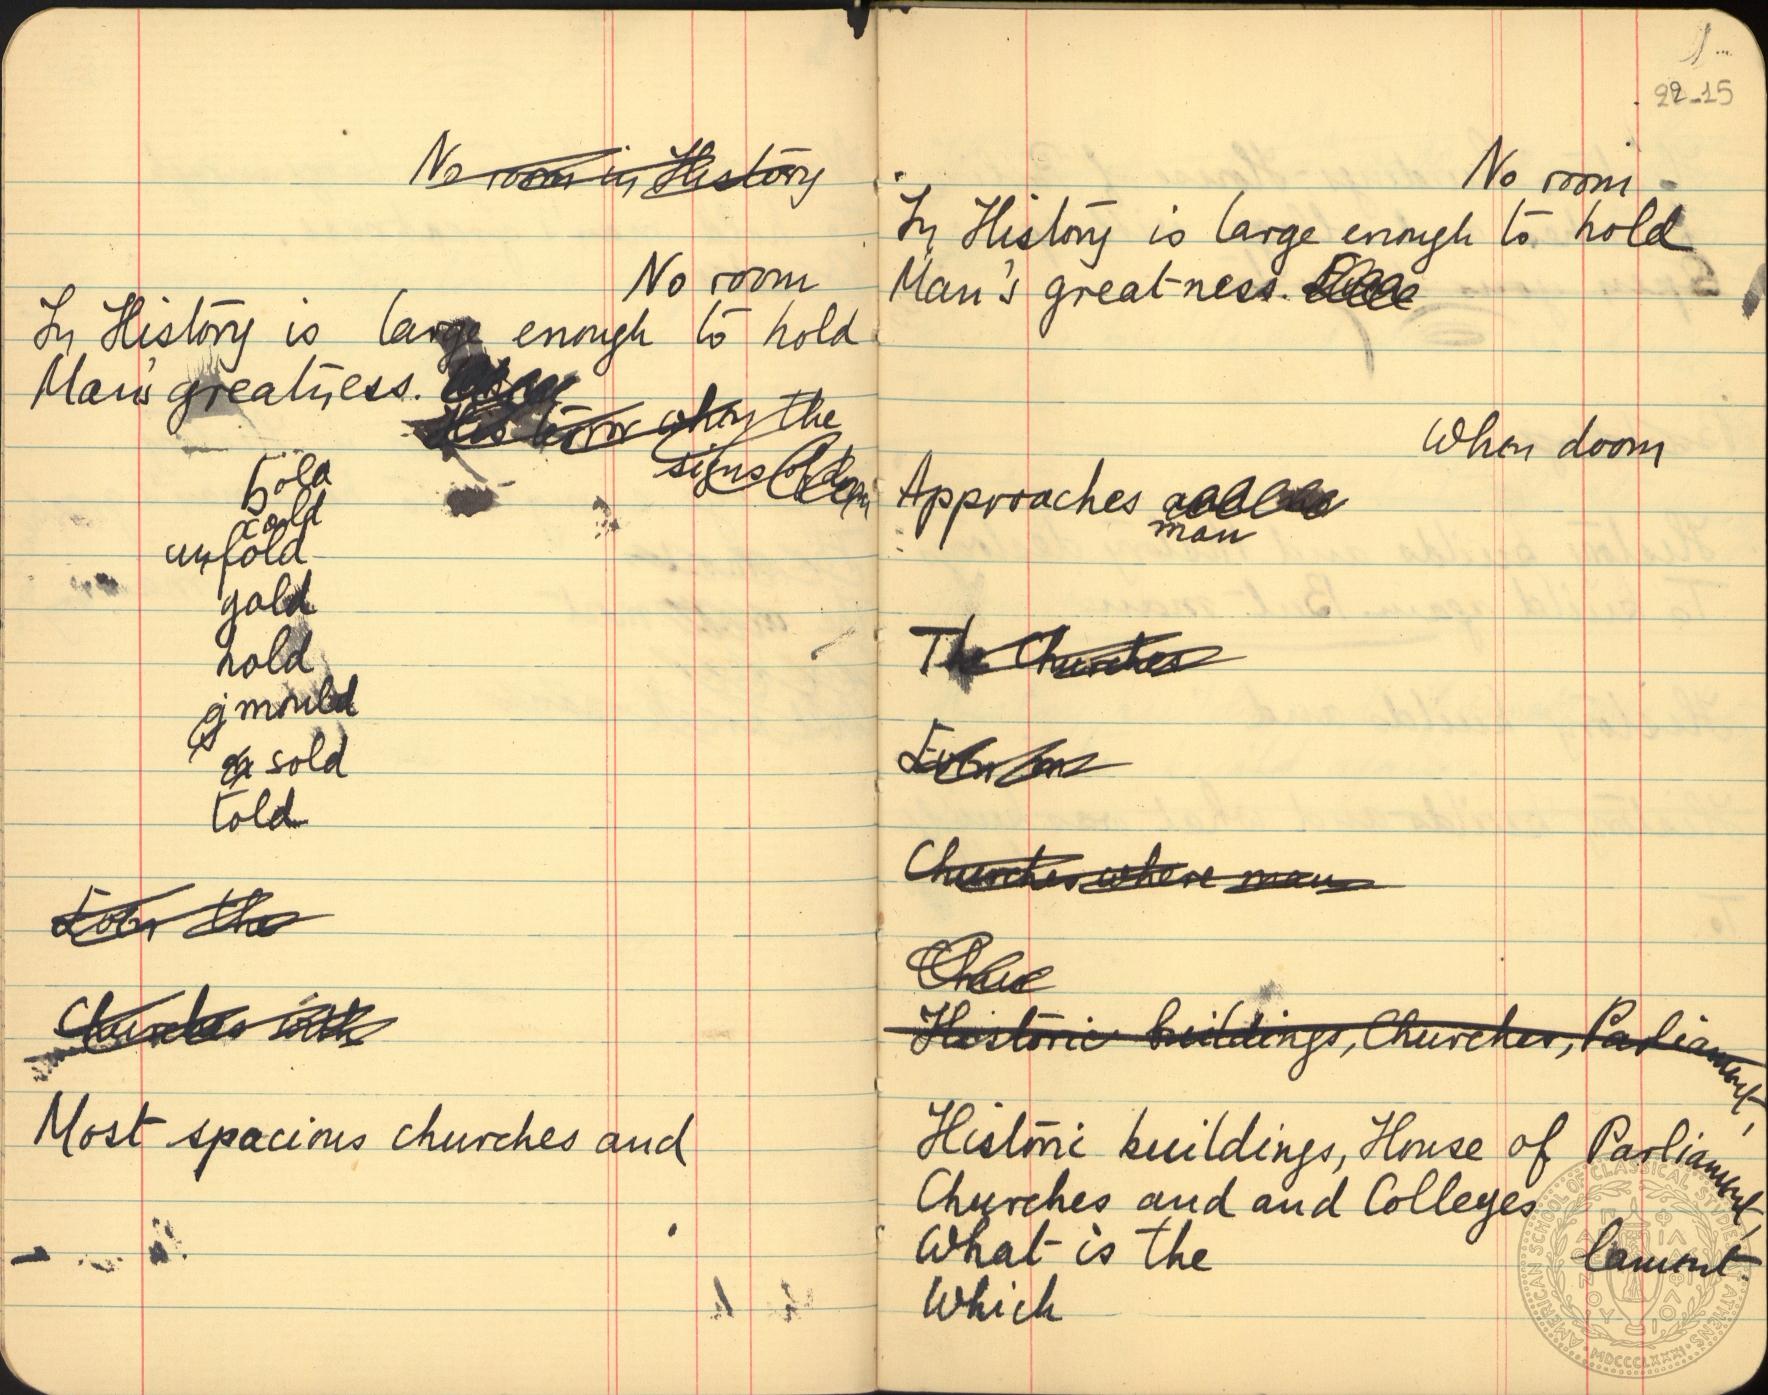 No room in History
No room
In History is large enough to hold
Man's greatness.
His error when the
signs of doom
bold
cold
unfold
gold
hold
mould
sold
told
Even the
Churches with
Most spacious churches and
22-15
No room
In History is large enough to hold
Man's greatness.
When doom
Approaches
man
The Churches
Even
Churches where man
Historic buildings, Churches, Parliament,
Historic buildings, House of Parliament,
Churches and and Colleges
What is the lament
Which
AMERICAN SCHOOL OF CLASSICAL STUDIES ATHENS
MDCCCLXXXI